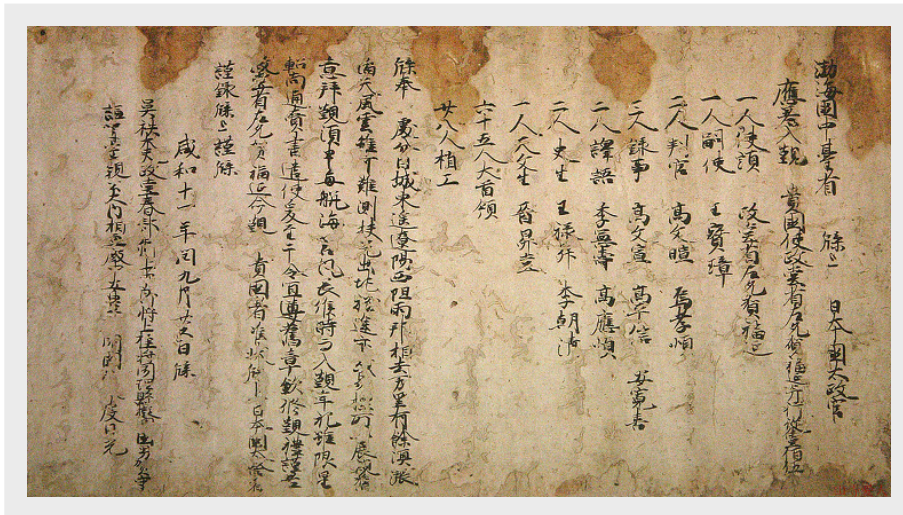 渤海國中臺省 牒上 日本國太政官
應差入覲 貴國使政堂省左允賀福延并行從壹佰伍
一人使頭 政堂省左允賀福延
一人嗣使 王寶璋
二人判官 高文暄 烏孝慎
三人録事 高文宣 高平信 安寛喜
二人譯語 李憲壽 高應順
二人史生 王禄昇 李朝清
一人天文生 晋昇堂
六十五人大首領
廿八人梢工
牒奉 處分日域東遥遼陽西阻兩邦相去万里有餘溟漲
滔天風雲雖可難測扶光出地程途亦或易標所以展親舊
意拜覲須申每航海占風長候時而入覲年紀雖限星
軺尚通賫書遣使爰至于今宜遵舊章欽修覲禮謹差
政堂省左允賀福延令覲 貴國者准状牒上日本國太政官者
謹録牒上謹牒
咸和十一年閏九月廿五日牒